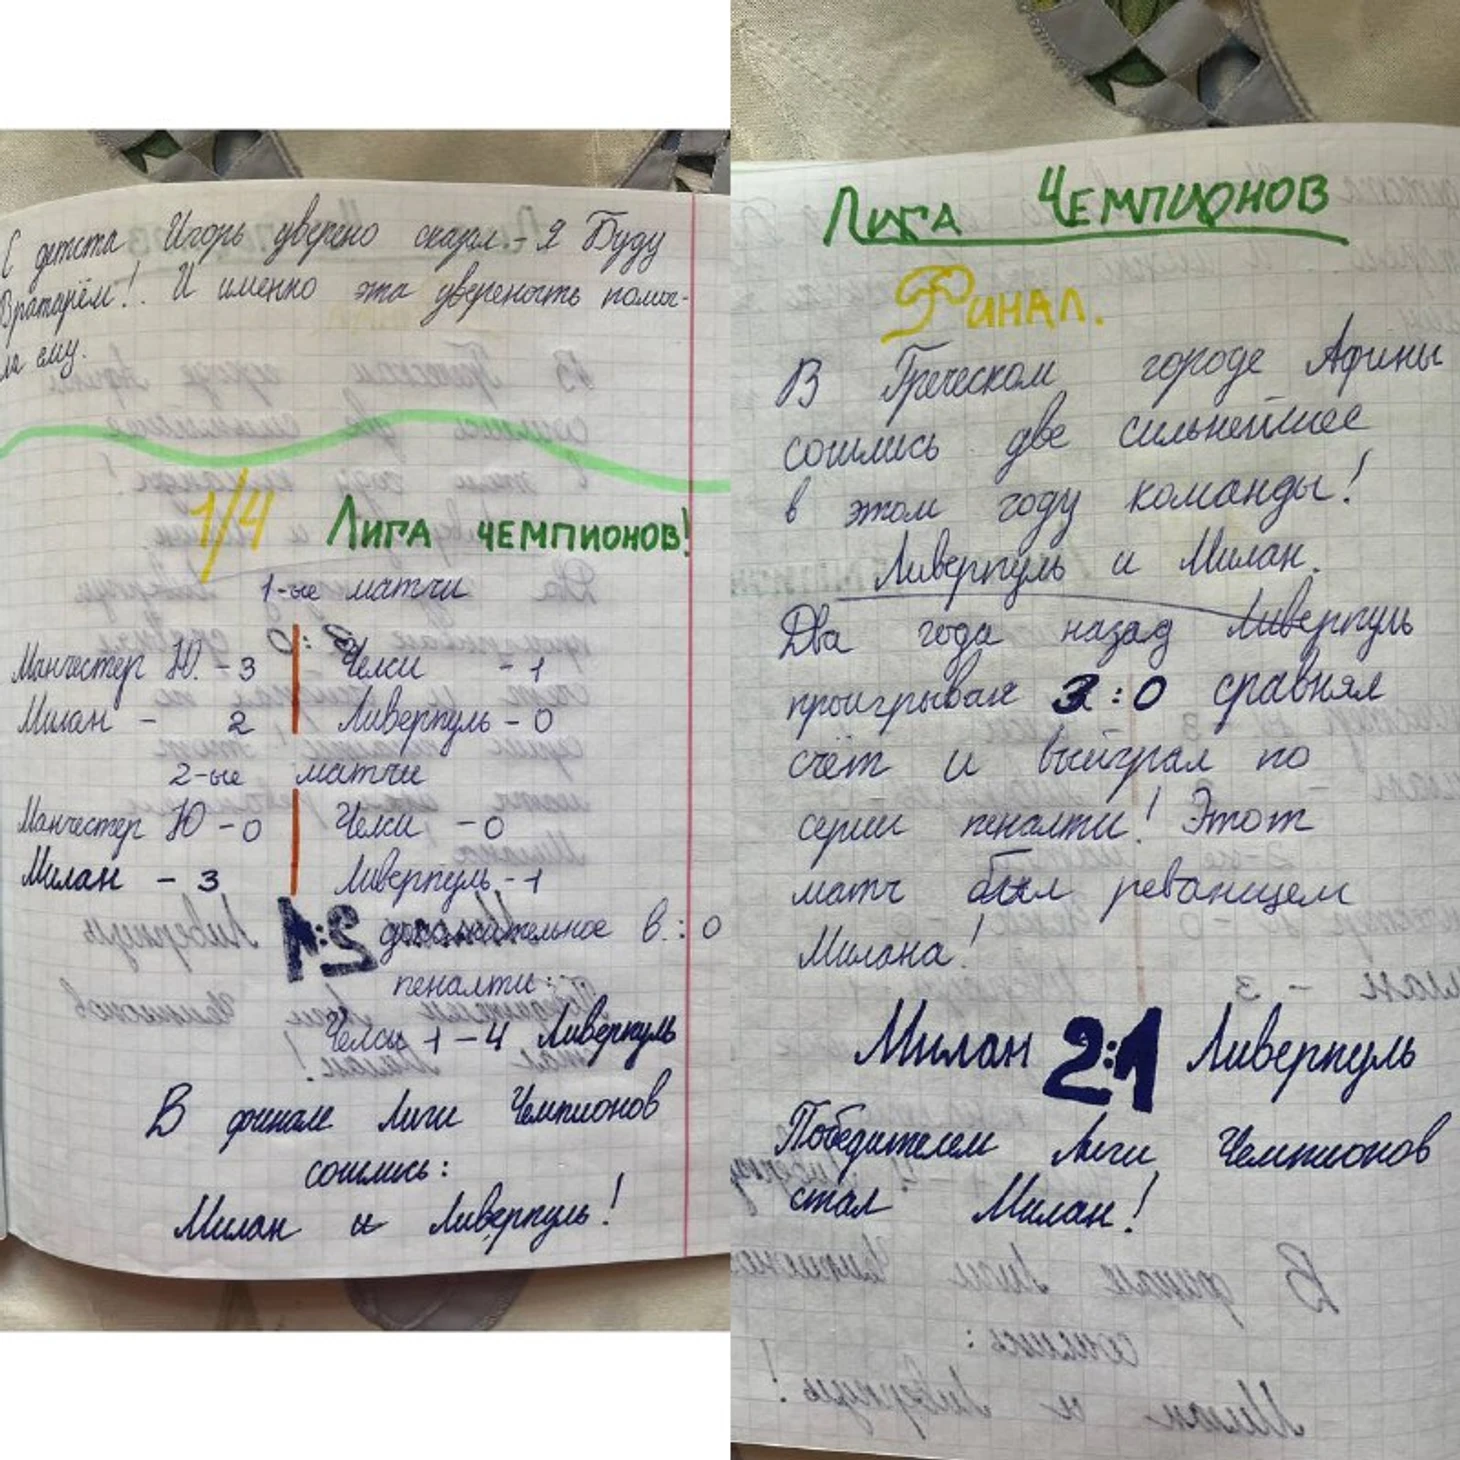 С детста Игорь уверено сказал - Я Буду
Вратарём! И именно эта увереность помог-
ла ему.
1/4 Лига чемпионов!
1-ые матчи
Манчестер Ю. - 3 Челси - 1
Милан - 2 Ливерпуль - 0
2-ые матчи
Манчестер Ю - 0 Челси - 0
Милан - 3 Ливерпуль - 1
дополнительное в.: 0
пеналти:
Челси 1 - 4 Ливерпуль
В финале Лиги Чемпионов
сошлись:
Милан и Ливерпуль!
Лига Чемпионов
Финал.
В Греческом городе Афины
сошлись две сильнейшее
в этом году команды!
Ливерпуль и Милан.
Два года назад Ливерпуль
проигрывая 3:0 сравнял
счёт и выйграл по
серии пеналти! Этот
матч был реваншем
Милана!
Милан 2:1 Ливерпуль
Победителем Лиги Чемпионов
стал Милан!